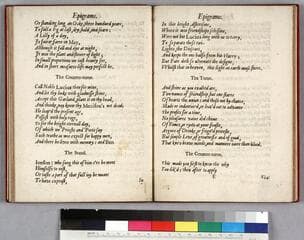 Epigrams.
Or standing long an Oake, three hundred yeare,
To fall a logge at last, dry, bald, and seare:
A Lilly of a day,
Is fairer farre in May,
Although it fall and die that night,
It was the plant and flower of light.
In small proportions we just beauty see,
And in short measures life may perfect be.
The Counter-turne.
Call Noble Lucius then for wine,
And let thy looks with gladnesse shine;
Accept this Garland, plant it on thy head,
And thinke, nay know thy Morison's not dead.
Hee leap'd the present age,
Possest with holy rage,
To see the bright eternall day,
Of which we Priests and Poets say
Such truths as we expect for happy men,
And there he lives with memory; and Ben.
The Stand.
Ionson: who sung this of him e're he went
Himselfe to rest,
Or taste a part of that full joy he meant
To have exprest,
In
Epigrams.
In this bright Asterisme,
Where it were friendships schisme,
Were not his Lucius long with us to tarry,
To separate these twi-
Lights, the Dioscuri,
And keepe the one halfe from his Harry:
But Fate doth so alternate the designe,
Whilst that in heaven, this light on earth must shine.
The Turne.
And shine as you exalted are,
Two names of friendship, but one starre
Of hearts the union; and those not by chance
Made, or indentur'd, or leas'd out to advance
The profits for a time,
No pleasures vaine did chime
Of Rimes, or ryots at your feasts,
Orgies of Drinke, or feign'd protests,
But simple Love of greatnesse, and of good,
That knits brave minds, and manners more then blood.
The Counter-turne.
This made you first to know the why
You lik'd; then after to apply